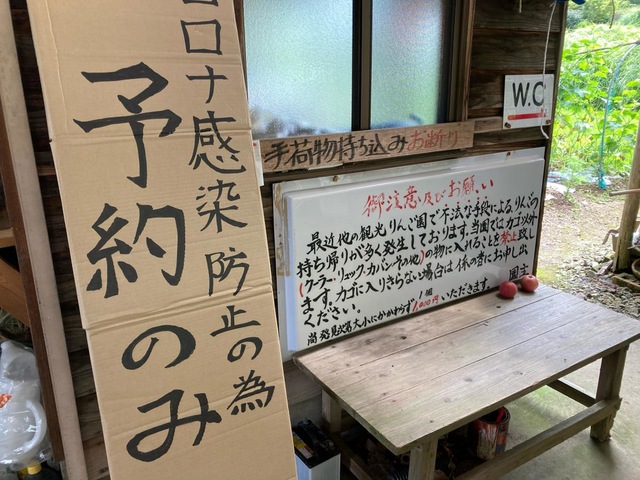 コロナ感染防止の為
予約のみ
手荷物持ち込みお断り
W.C
御注意及びお願い
最近他の観光りんご園で不法な手段によるりんご
持ち帰りが多く発生しております。当園ではカゴ以外
(クーラー、リュック、カバンその他)の物に入れることを禁止致し
ます。カゴに入りきらない場合は係の者にお申し出
ください。 園主
尚発見次第大小にかかわらず1個1,000円いただきます。